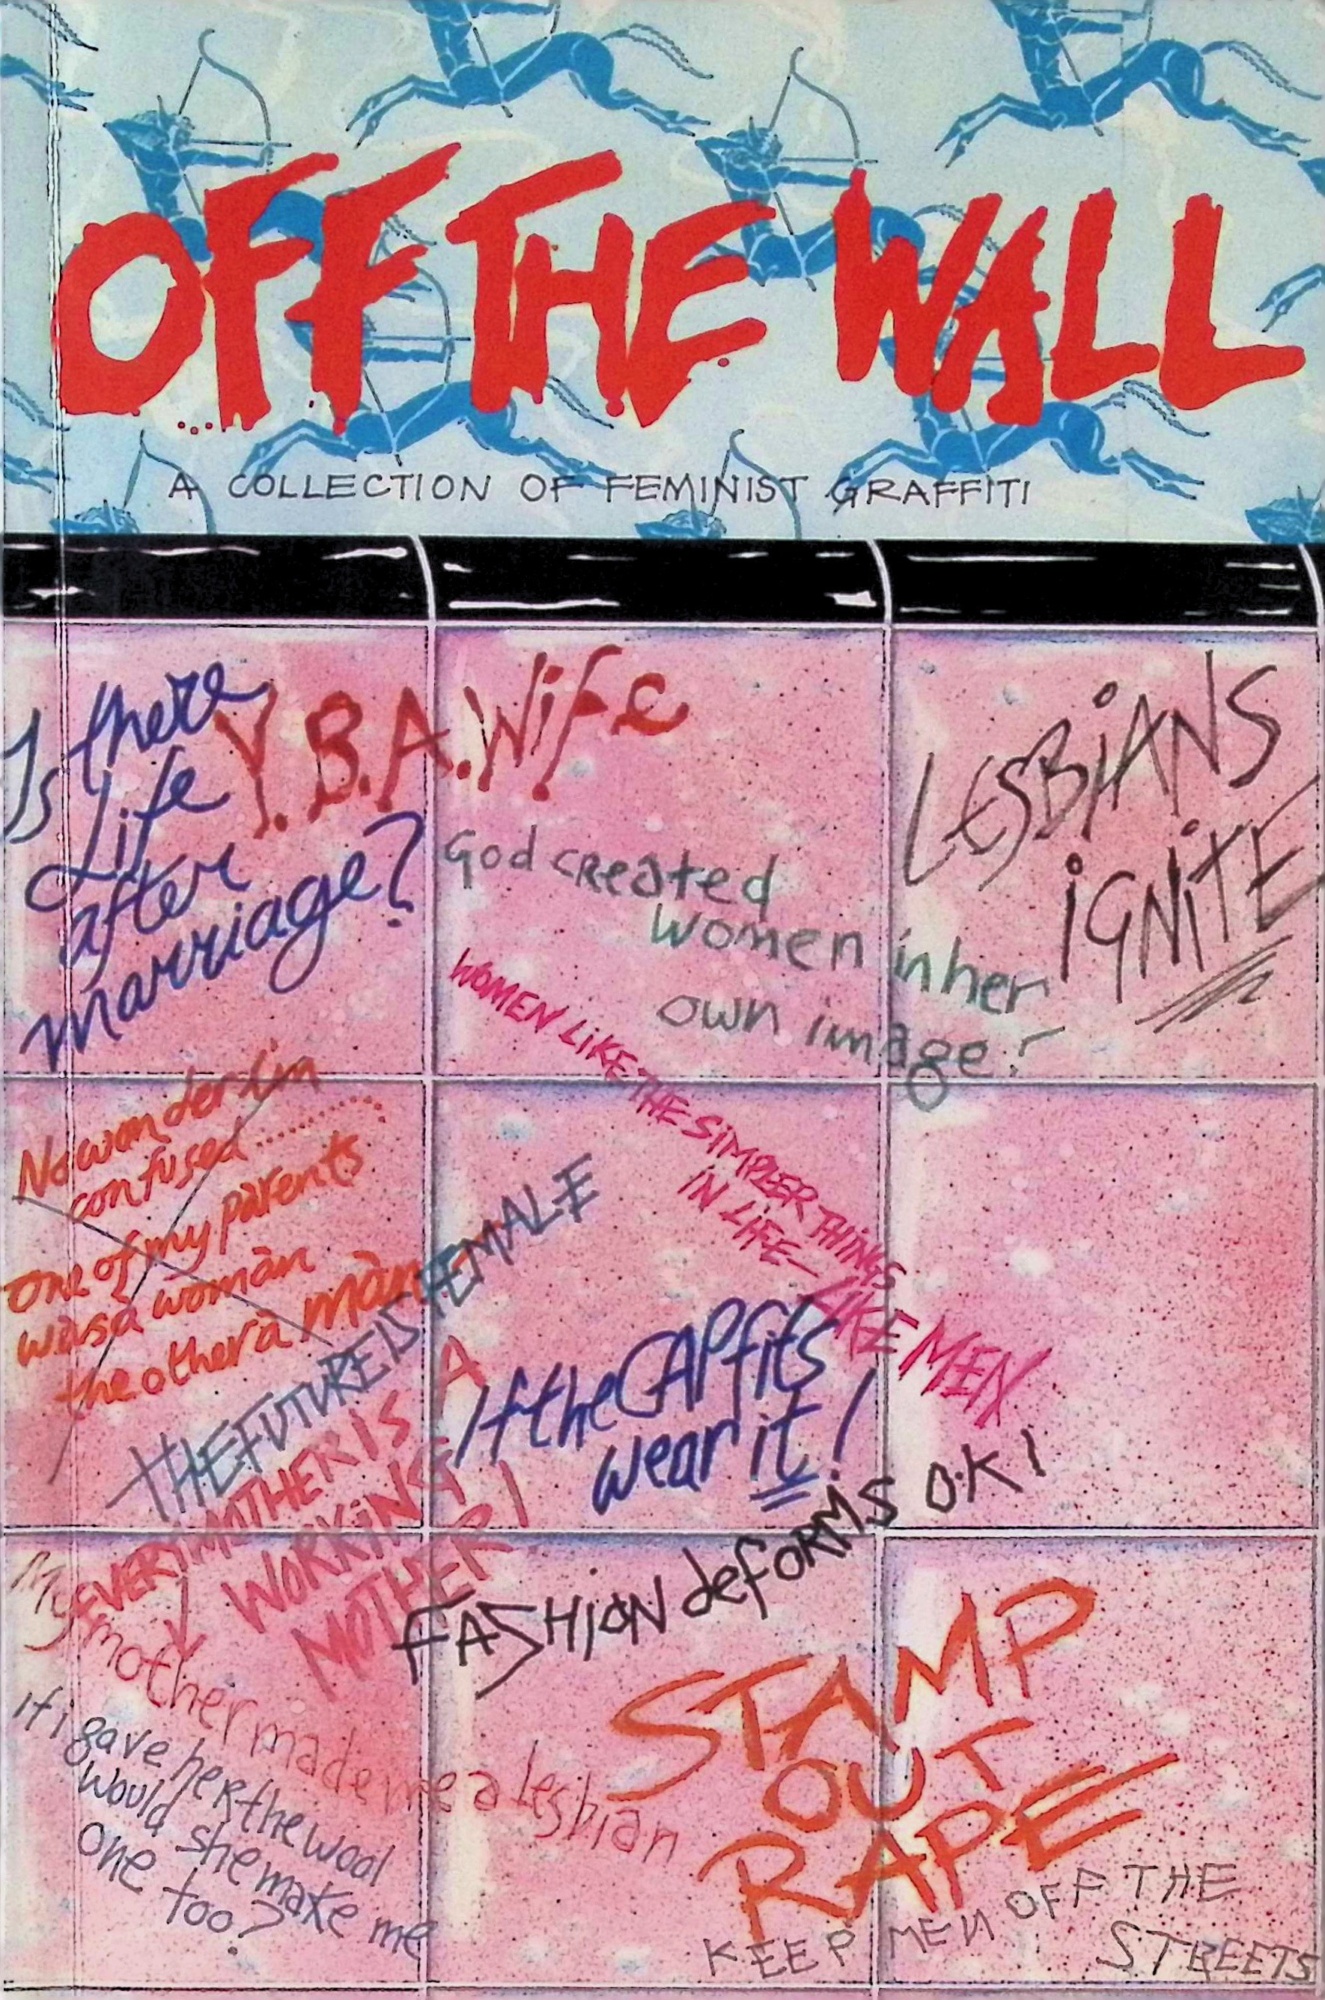 OFF THE WALL
A COLLECTION OF FEMINIST GRAFFITI
Is there
Life
after
marriage?
Y.B.A.Wife
LESBiANS
iGNiTE
God cReated
women in her
own image!
WOMEN LIKE THE SIMPLER THINGS
IN LIFE— LIKE MEN
No wonder i'm
confused..........
one of my parents
was a woman
the other a man
THE FUTURE IS FEMALE
If the CAP fits
wear it!
EVERY MOTHER IS A
WORKING
MOTHER!
FASHiON deFORMS O.K!
My
mother made me a lesbian
if i gave her the wool
would she make me
one too?
STAMP
OUT
RAPE
KEEP MEN OFF THE
STREETS